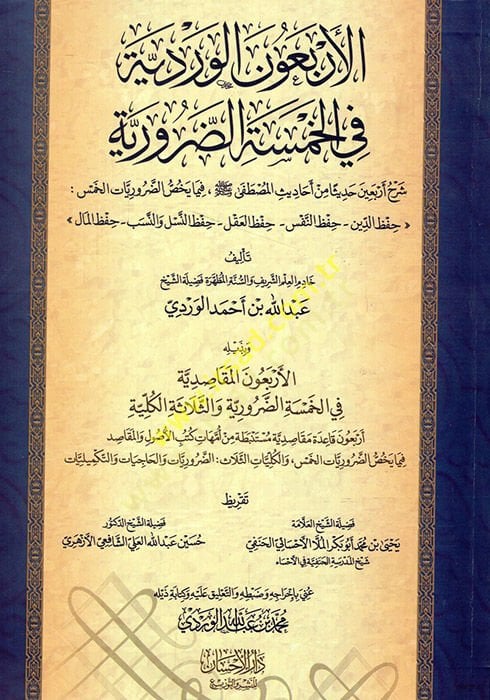 الأربعون الوردية
في الخمسة الضرورية
شرح أربعين حديثا من أحاديث المصطفى ﷺ، فيما يخص الضروريات الخمس:
« حفظ الدين - حفظ النفس - حفظ العقل - حفظ النسل والنسب - حفظ المال »
تأليف
خادم العلم الشريف والسنة المطهرة فضيلة الشيخ
عبدالله بن أحمد الوردي
وبذيله
الأربعون المقاصدية
في الخمسة الضرورية والثلاثة الكلية
أربعون قاعدة مقاصدية مستنبطة من أمهات كتب الأصول والمقاصد
فيما يخص الضروريات الخمس، والكليات الثلاث: الضروريات والحاجيات والتكميليات
تقريظ
فضيلة الشيخ العلامة
يحيى بن محمد أبو بكر الملا الأحسائي الحنفي
شيخ المدرسة الحنفية في الأحساء
فضيلة الشيخ الدكتور
حسين عبدالله العلي الشافعي الأزهري
عني بإخراجه وضبطه والتعليق عليه وكتابة ذيله
محمد بن عبدالله الوردي
دار الإحسان
للنشر والتوزيع